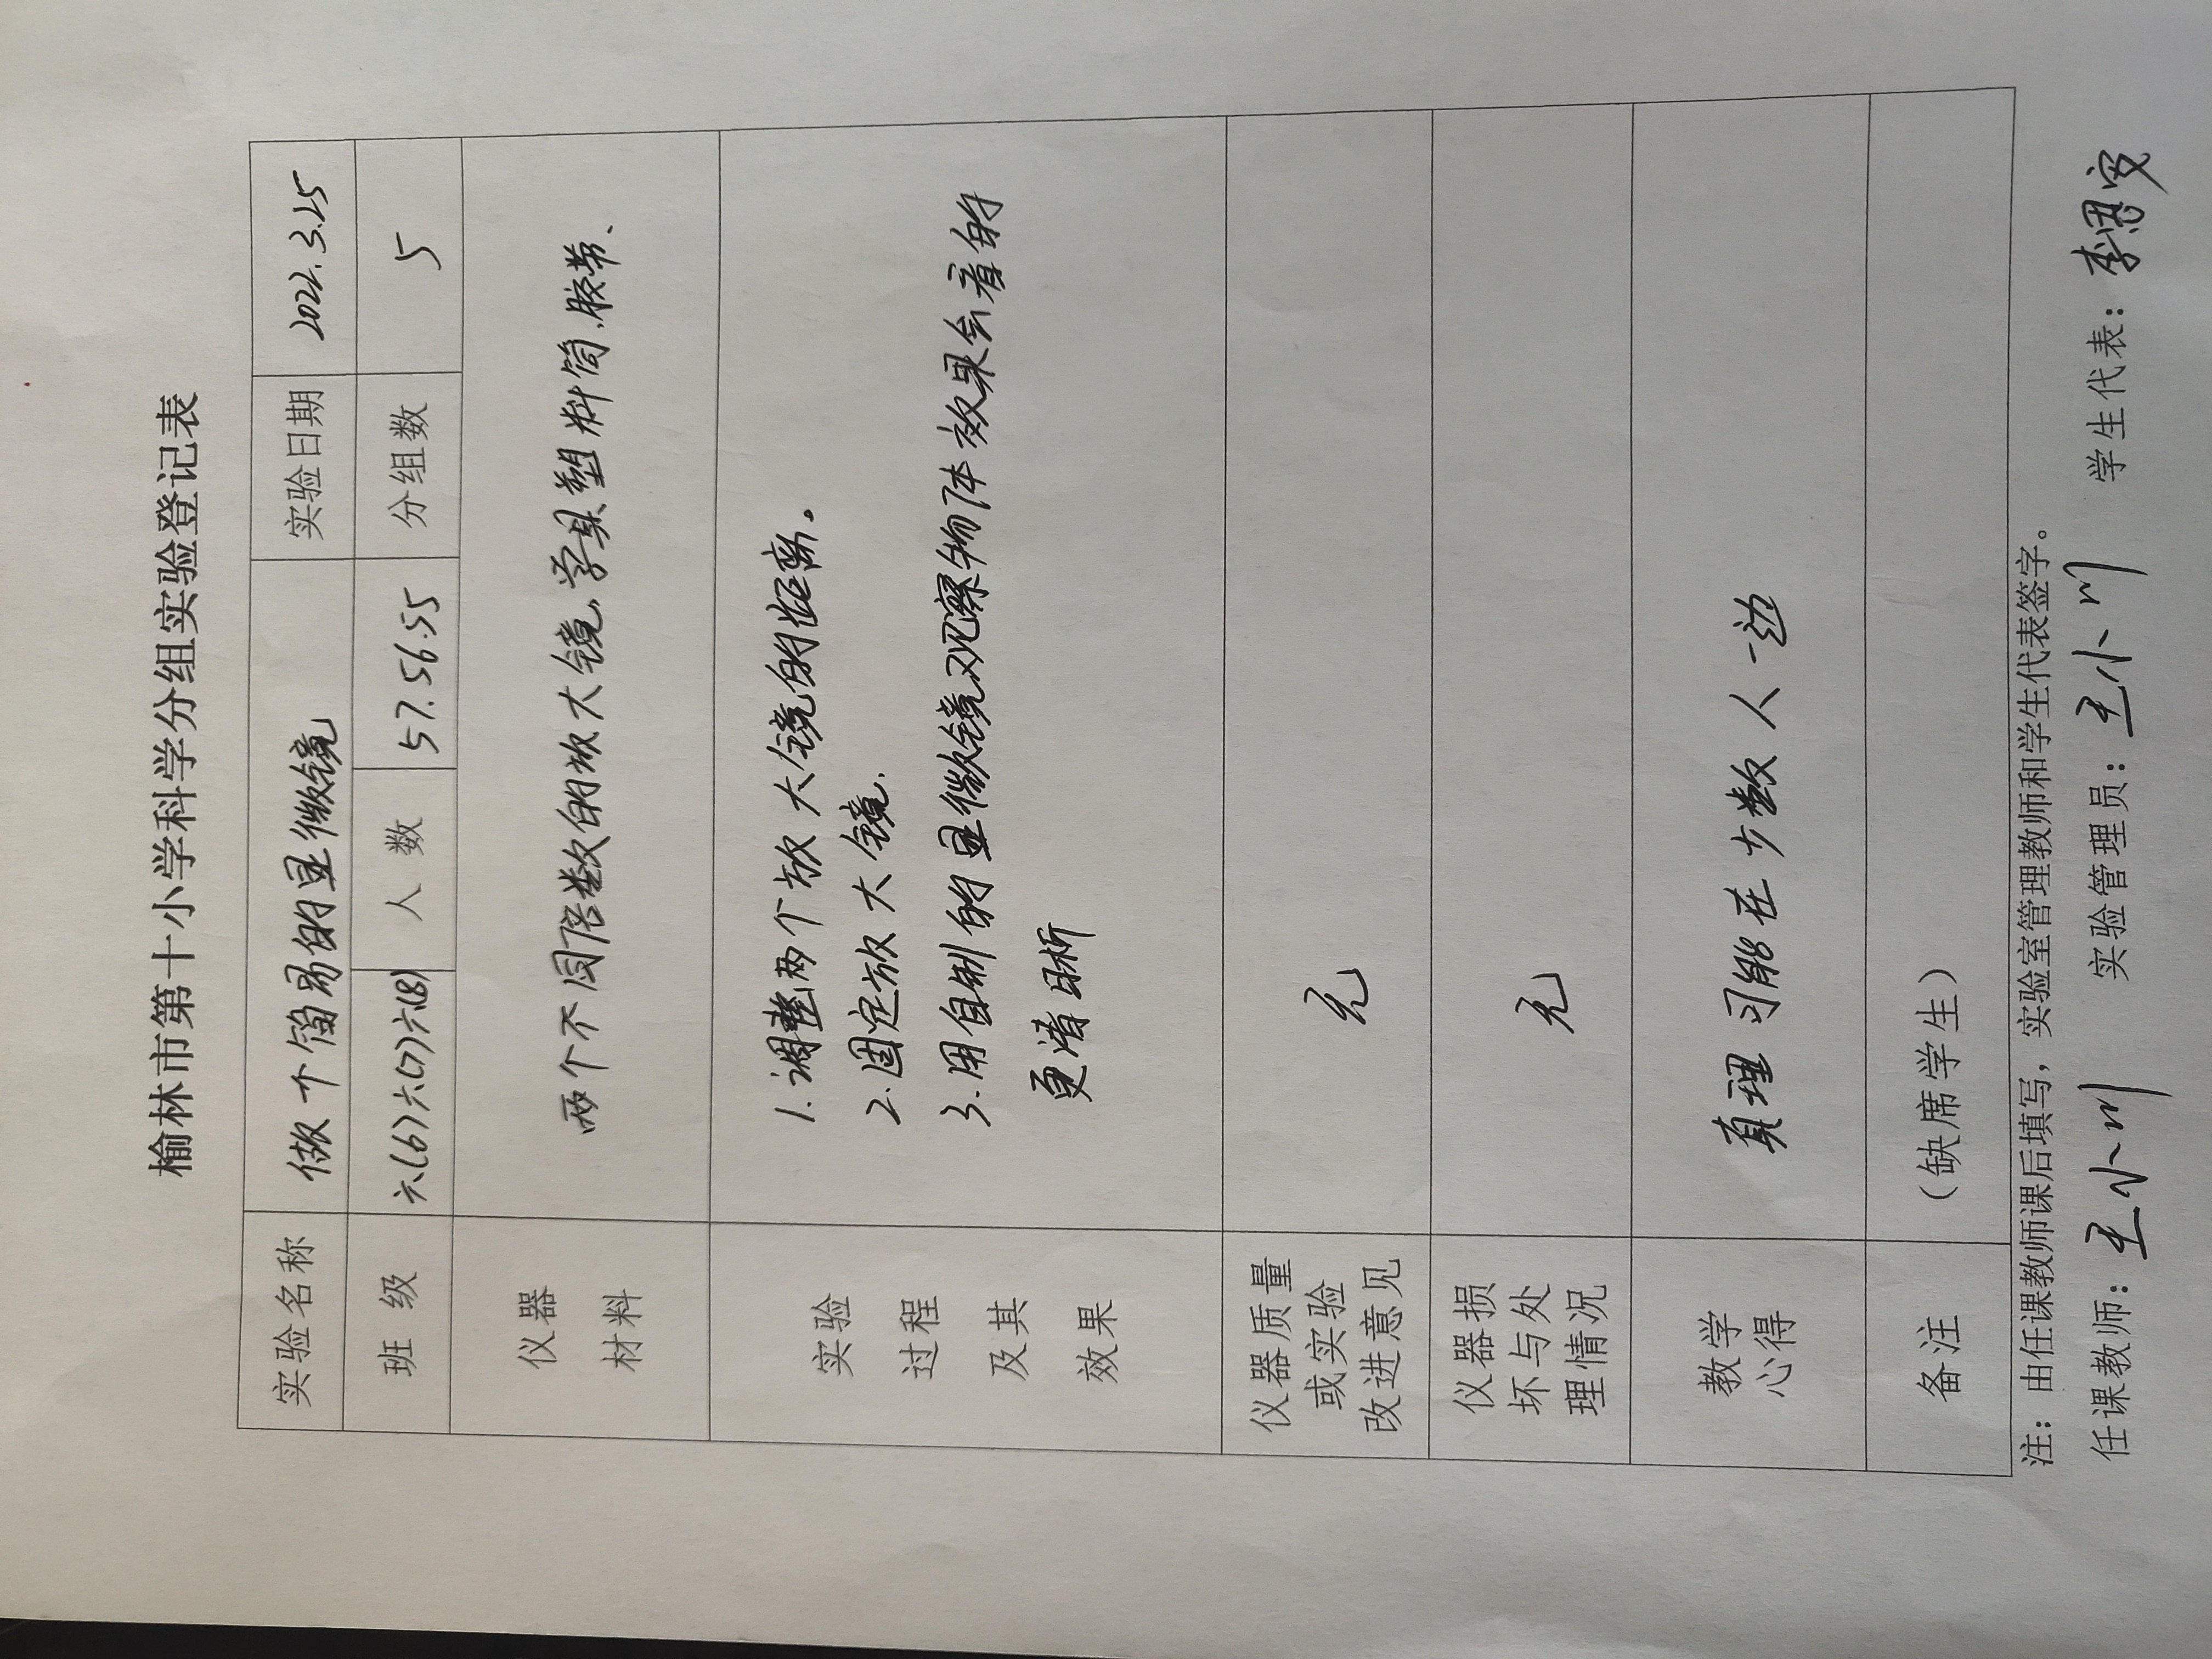 榆林市第十小学科学分组实验登记表
实验名称 做一个简易的显微镜 实验日期 2022.3.25
班 级 六(6)六(7)六(8) 人 数 57.56.55 分组数 5
仪器
材料
两个不同倍数的放大镜、学具塑料筒、胶带、
实验
过程
及其
效果
1.调整两个放大镜的距离。
2.固定放大镜.
3.用自制的显微镜观察物体效果会看的
更清晰
仪器质量
或实验
改进意见
无
仪器损
坏与处
理情况
无
教学
心得
真理可能在少数人一边
备注 （缺席学生）
注：由任课教师课后填写，实验室管理教师和学生代表签字。
任课教师：王小川 实验管理员：王小川 学生代表：李思安